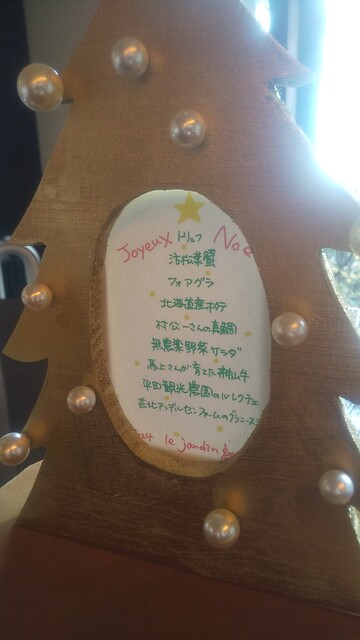 Joyeux Noe
トリュフ
活松葉蟹
フォアグラ
北海道産帆立
村公一さんの真鯛
無農薬野菜サラダ
馬上さんが育てた神山牛
平田観光農園のル レクチェ
芸北アンデルセンファームのグラニースミ
24 le jardin